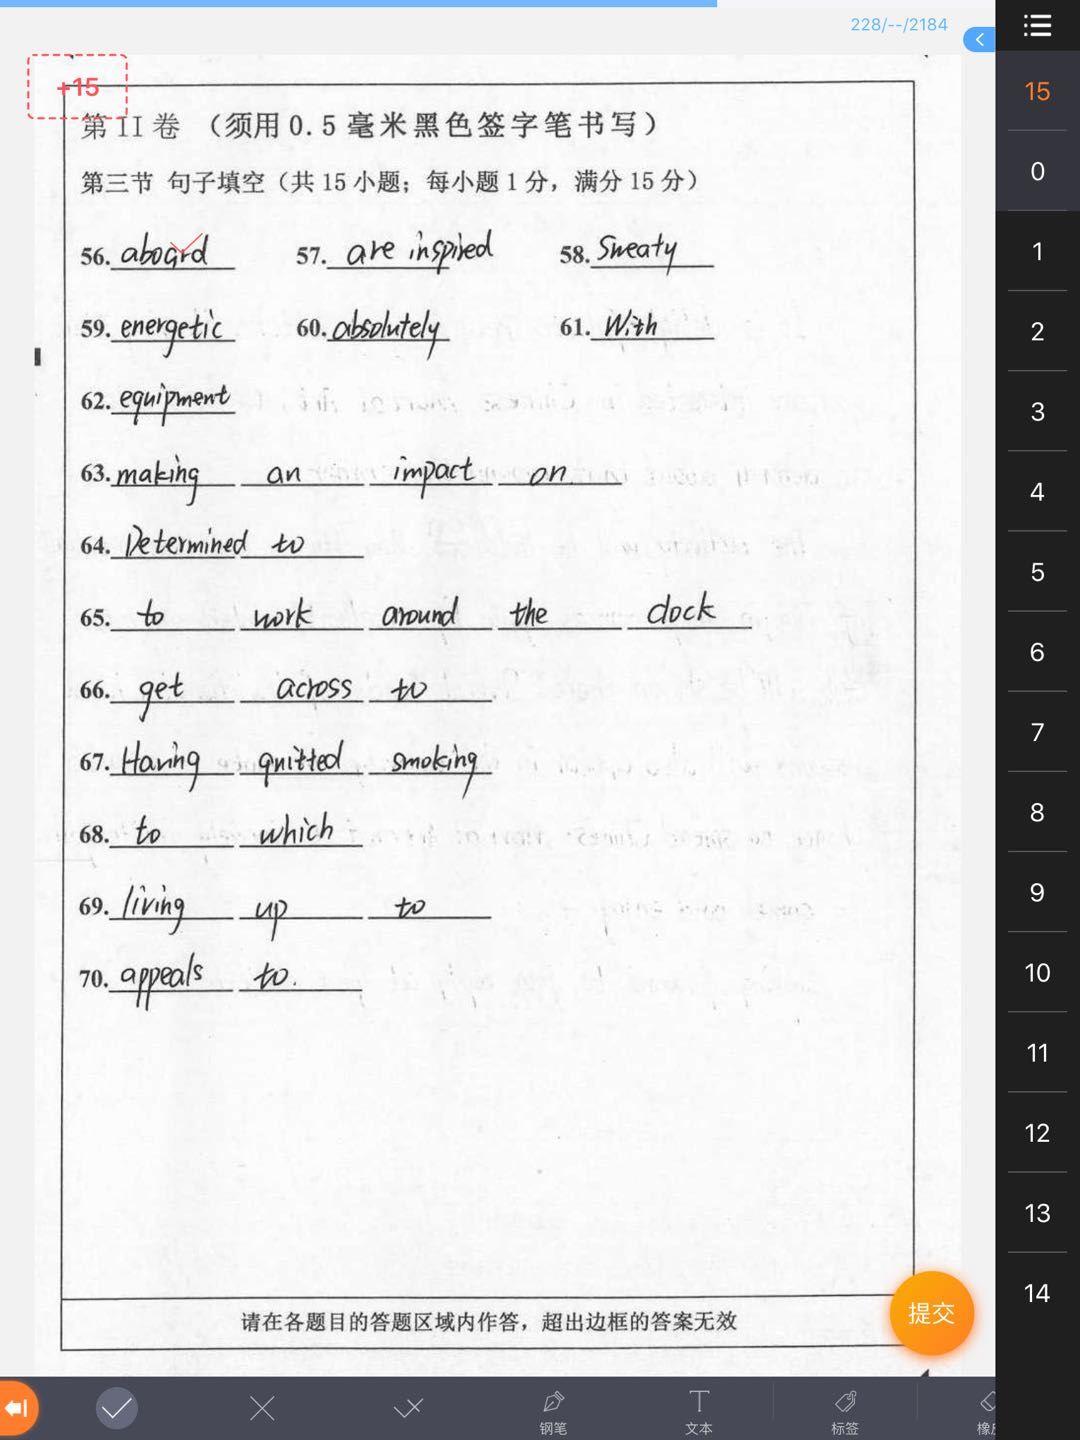 228/--/2184
+15
第II卷（须用0.5毫米黑色签字笔书写）
第三节 句子填空（共15小题；每小题1分，满分15分）
56. aboard 57. are inspired 58. Sweaty
59. energetic 60. absolutely 61. With
62. equipment
63. making an impact on.
64. Determined to
65. to work around the clock
66. get across to
67. Having quitted smoking
68. to which
69. living up to
70. appeals to.
请在各题目的答题区域内作答，超出边框的答案无效
15
0
1
2
3
4
5
6
7
8
9
10
11
12
13
14
提交
钢笔 文本 标签